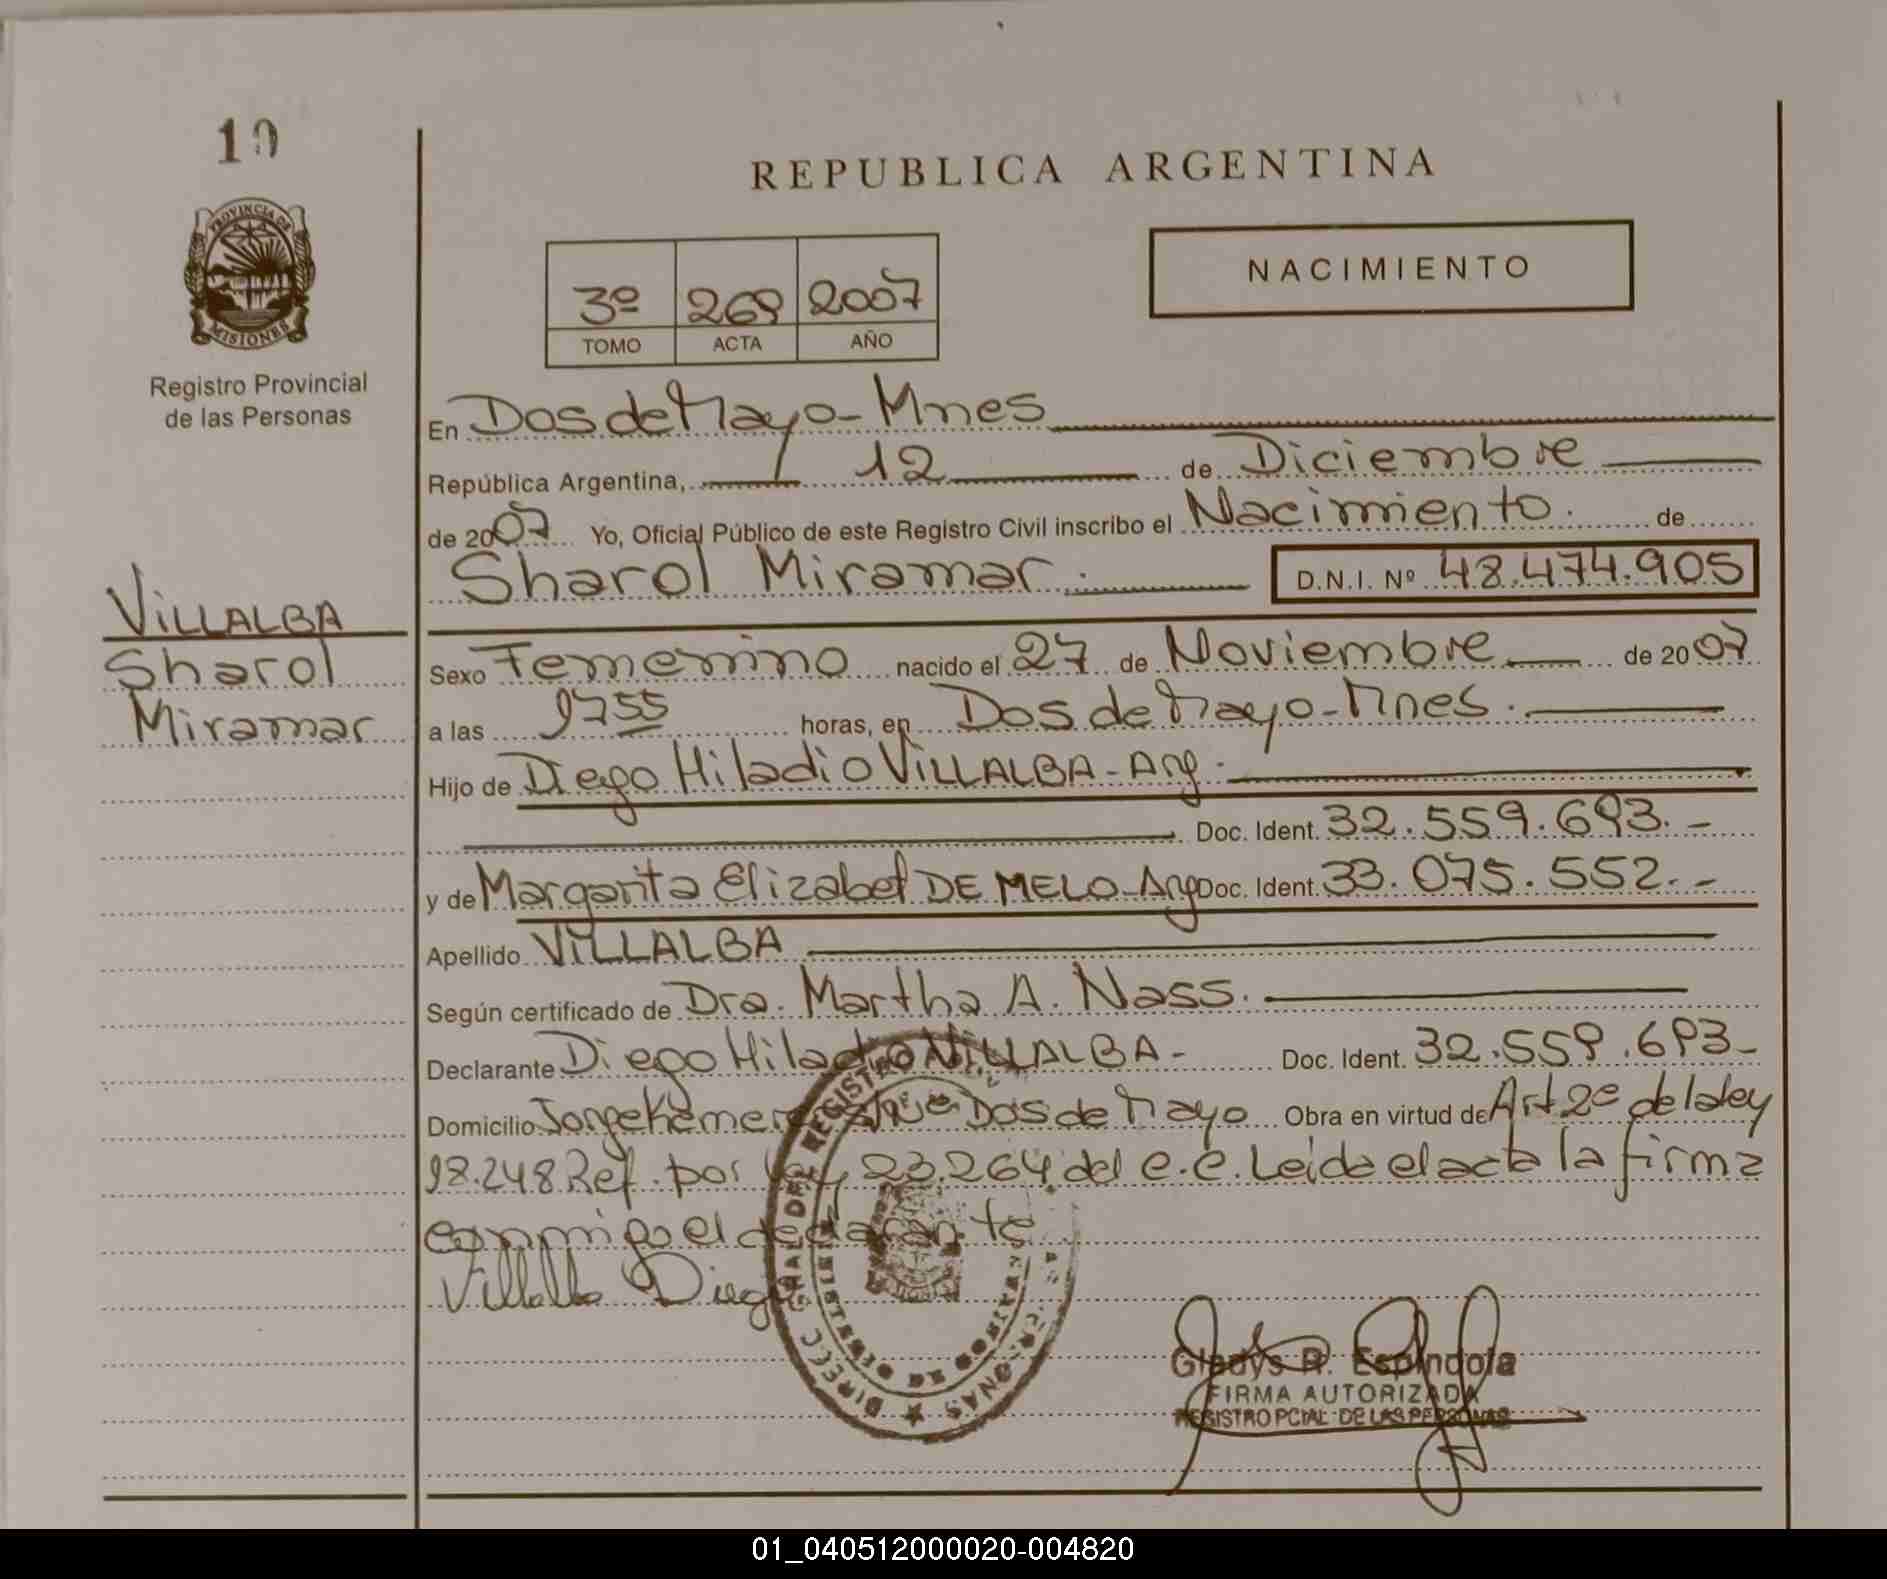 10
PROVINCIA DE
MISIONES
Registro Provincial
de las Personas
VILLALBA
Sharol
Miramar
REPUBLICA ARGENTINA
3º 269 2007
TOMO ACTA AÑO
NACIMIENTO
En Dos de Mayo - Mnes
República Argentina, 12 de Diciembre
de 2007 Yo, Oficial Público de este Registro Civil inscribo el Nacimiento. de
Sharol Miramar. D.N.I. Nº 48.474.905
Sexo Femenino nacido el 27 de Noviembre de 2007
a las horas, en Dos de Mayo - Mnes.
Hijo de Diego Hiladio VILLALBA - Arg.
Doc. Ident. 32.559.693.-
y de Margarita Elizabet DE MELO - Arg Doc. Ident. 33.075.552.-
Apellido VILLALBA
Según certificado de Dra. Martha A. Nass.
Declarante Diego Hiladio VILLALBA - Doc. Ident. 32.559.693-
Domicilio Jorge Dos de Mayo Obra en virtud de Art 2º de la ley
18.248 Ref. por 23.264 del C.C. Leida el acta la firma
conmigo el declarante
Villalba Diego
Gladys R. Espindola
FIRMA AUTORIZADA
REGISTRO PCIAL. DE LAS PERSONAS
01_040512000020-004820